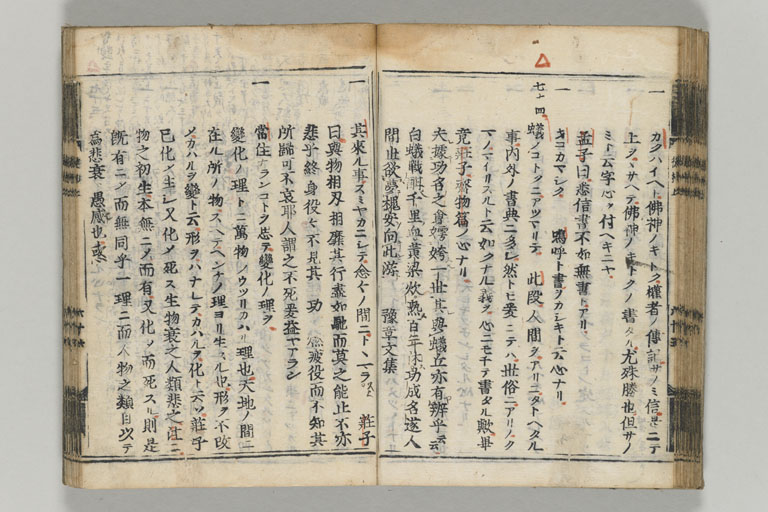 一 カクハイヘト佛神ノキトク權者ノ傳記サノミ信せニテ
上ヲマサヘテ佛神ノキトクノ書タル尤殊勝也但サノ
ミト云字心ヲ付ヘキニヤ
孟子曰悉信書不如無書トアリ
一 キコカマシク 嗚呼ト書ヲカシキト云心ナリ
七十四 蟻ノコトクニアツマリテ 此段人間ヲアリニタトヘタル
事内外ノ書典ニ多シ然トモ爰ニテハ世俗ニアリノク
マノマイリスルト云如クナル義ヲ心ニモチテ書タル歟畢
竟莊子齊物篇ノ心ナリ
夫婁功名之會 一世其與蟻丘亦有辨乎云云
白蟻戰酣千里血黄粱炊熟百年休功成名遂人
間世欲夢槐安向此游 豫章文集
一 其來ル事スミヤカニシテ念々ノ間ニトヽマラス 莊子
曰與物相刃相靡其行盡如馳而莫之能止不亦
悲乎終身役々不見其 功 疲役而不知其
所歸可不哀耶人謂之不死奚益ヤアラン
一 常住ナランコトヲ思テ變化ノ理ヲ
變化ノ理トハ萬物ノウツリカハル理也天地ノ間ニ
在ル所ノ物スヘテヘンケノ理ヨリ生スル也形ヲ不改
メカハルヲ變ト云形ヲハナレテカハルヲ化ト云ソ莊子
已化メ生シ又化メ死ス生物哀之人類悲之注ニ
物之初生本無ニメ而有又化メ而死スル則是
既有ニメ而無同乎一理ニ而不物之類自以テ
為悲哀 愚惑也